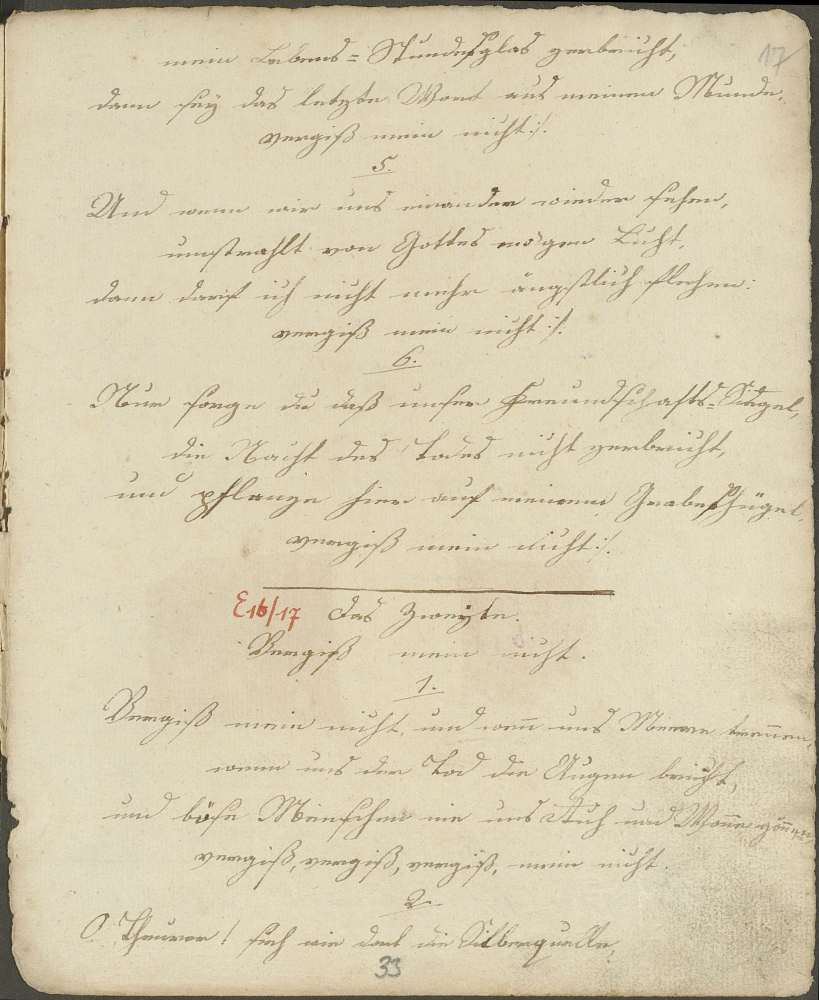 17
mein Lebens=Stundesglas zerbricht,
dann sey das letzte Wort aus meinem Munde,
vergiß mein nicht :/:
5.
Und wenn wir uns einander wieder sehen,
umstrahlt von Gottes ewgen Licht,
dann darf ich nicht mehr ängstlich flehen:
vergiß mein nicht :/:
6.
Nur sorge du daß unser Freundschafts=Sigel,
die Nacht des Todes nicht zerbricht,
und pflanze hier auf meinem Grabeshügel,
vergiß mein nicht :/:
E16/17 Das Zweyte.
Vergiß mein nicht.
1.
Vergiß mein nicht, und wenn uns Meere trennen,
wenn uns der Tod die Augen bricht,
und böse Menschen nie uns Ruh und Wonne gönnen,
vergiß, vergiß, vergiß, mein nicht.
2.
O Theurer! sieh wie dort die Silberquelle,
33